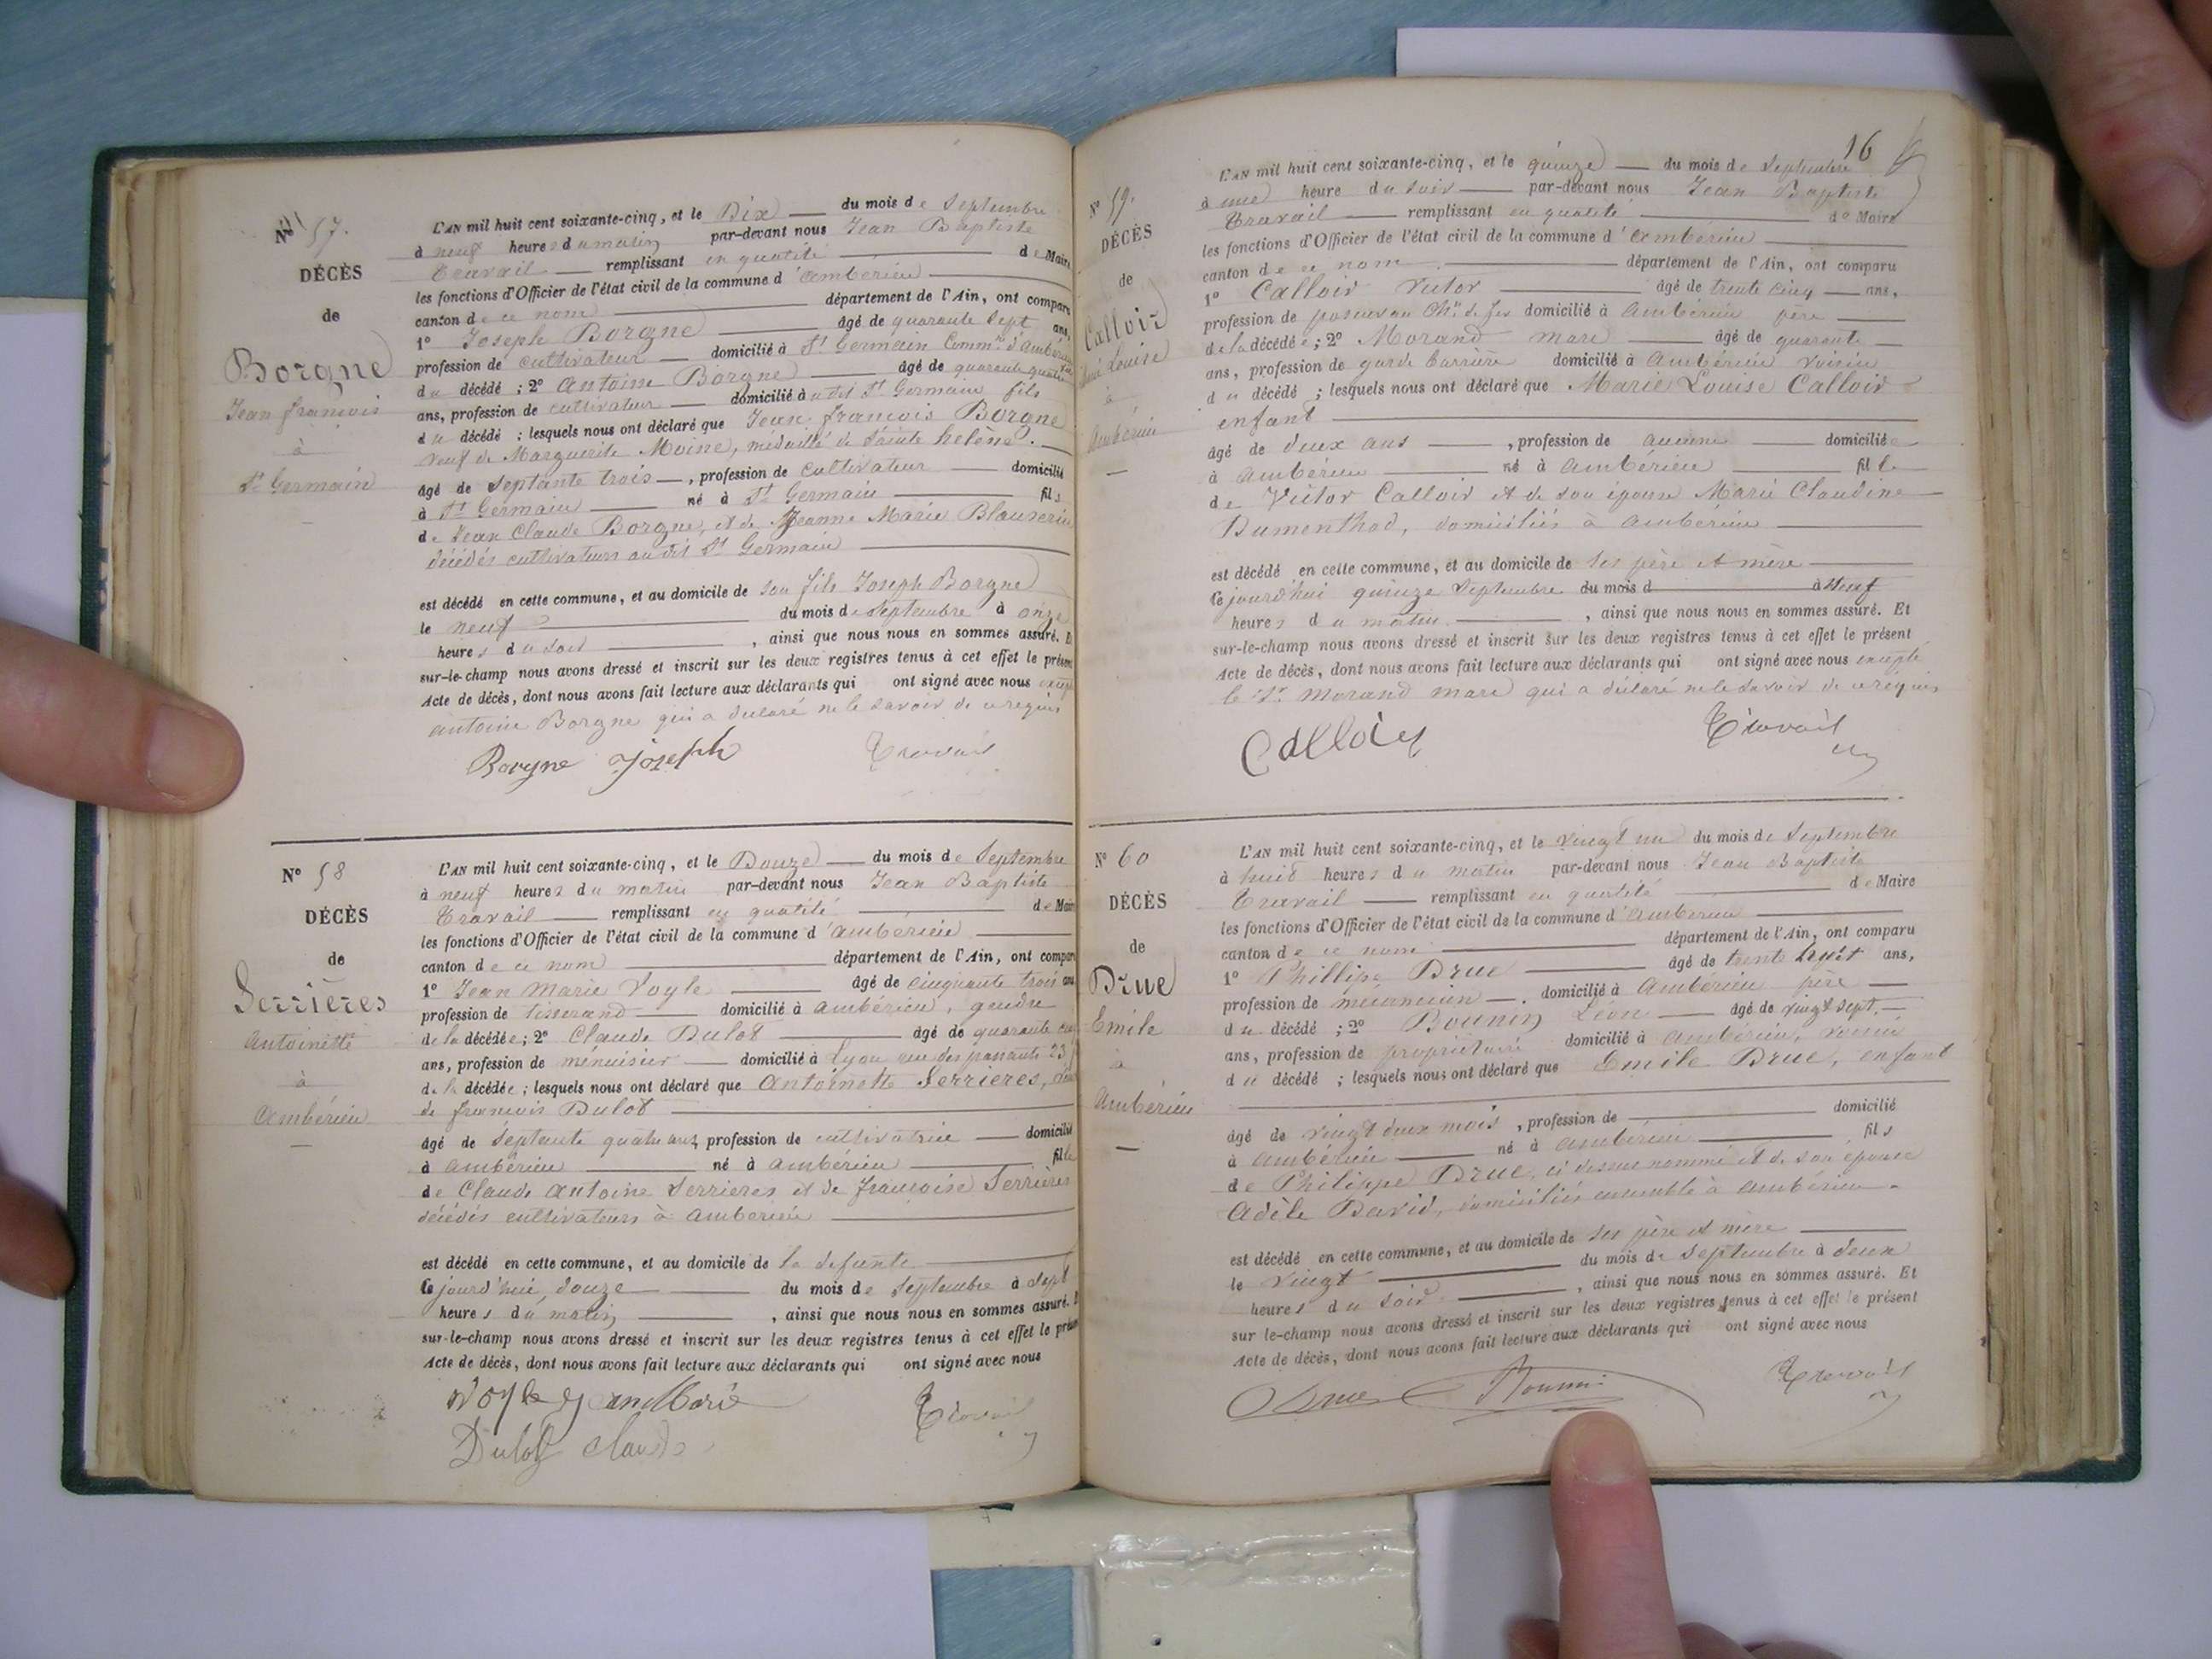 Nº 57.
DÉCÈS
de
Borgne
Jean françois
à
St Germain
L'AN mil huit cent soixante-cinq, et le Dix du mois de Septembre
à neuf heures du matin par-devant nous Jean Baptiste
Travail remplissant en qualité de Maire
les fonctions d'Officier de l'état civil de la commune d'ambérieu
canton de ce nom département de l'Ain, ont comparu
1º Joseph Borgne âgé de quarante Sept ans,
profession de cultivateur domicilié à St Germain Commne d'ambérieu
du décédé ; 2º Antoine Borgne âgé de quarante quatre
ans, profession de cultivateur domicilié à udit St Germain fils
du décédé ; lesquels nous ont déclaré que Jean françois Borgne
veuf de Marguerite Moine, médaillé de Sainte helène.
âgé de Septante trois, profession de cultivateur domicilié
à St Germain né à St Germain fils
de Jean Claude Borgne, et de Jeanne Marie
décédés cultivateurs audit St Germain
est décédé en cette commune, et au domicile de son fils Joseph Borgne
le neuf du mois de Septembre à onze
heures du soir , ainsi que nous nous en sommes assuré. Et
sur-le-champ nous avons dressé et inscrit sur les deux registres tenus à cet effet le présent
Acte de décès, dont nous avons fait lecture aux déclarants qui ont signé avec nous excepté
antoine Borgne qui a déclaré ne le savoir de ce requis
Borgne Joseph Travail
Nº 58
DÉCÈS
de
Serrières
antoinette
à
ambérieu
L'AN mil huit cent soixante-cinq, et le Douze du mois de Septembre
à neuf heures du matin par-devant nous Jean Baptiste
Travail remplissant en qualité de Maire
les fonctions d'Officier de l'état civil de la commune d'ambérieu
canton de ce nom département de l'Ain, ont comparu
1º Jean Marie Voyle âgé de cinquante trois ans
profession de tisserand domicilié à ambérieu, gendre
de la décédée ; 2º Claude Dulot âgé de quarante
ans, profession de menuisier domicilié à Lyon rue des passants 23
de la décédée ; lesquels nous ont déclaré que antoinette Serrieres,
de françois Dulot
âgé de Septante quatre ans, profession de cultivatrice domicilié
à ambérieu né à ambérieu fille
de Claude antoine Serrieres et de françoise Serrières
décédés cultivateurs à ambérieu
est décédé en cette commune, et au domicile de la défunte
le jourd'hui douze du mois de Septembre à Sept
heures du matin , ainsi que nous nous en sommes assuré. E
sur-le-champ nous avons dressé et inscrit sur les deux registres tenus à cet effet le présen
Acte de décès, dont nous avons fait lecture aux déclarants qui ont signé avec nous
Voyle Jean Marie Travail
Dulot Claude
16
Nº 59.
DÉCÈS
de
Calloid
Marie Louise
à
ambérieu
L'AN mil huit cent soixante-cinq, et le quinze du mois de Septembre
à une heure du soir par-devant nous Jean Baptiste
Travail remplissant en qualité de Maire
les fonctions d'Officier de l'état civil de la commune d'ambérieu
canton de ce nom département de l'Ain, ont comparu
1º Calloid Victor âgé de trente cinq ans,
profession de poseur au Chin de fer domicilié à Ambérieu père
de la décédée ; 2º Morand marc âgé de quarante
ans, profession de garde barrière domicilié à Ambérieu voisin
du décédé ; lesquels nous ont déclaré que Marie Louise Calloid
enfant
âgé de deux ans , profession de aucune domiciliée
à ambérieu né à ambérieu fille
de Victor Calloid et de son épouse Marie Claudine
Dumenthod, domiciliés à ambérieu
est décédé en cette commune, et au domicile de ses père et mère
le jourd'hui quinze Septembre du mois d à neuf
heures du matin , ainsi que nous nous en sommes assuré. Et
sur-le-champ nous avons dressé et inscrit sur les deux registres tenus à cet effet le présent
Acte de décès, dont nous avons fait lecture aux déclarants qui ont signé avec nous excepté
le Sr Morand marc qui a déclaré ne le savoir de ce requis
Travail
Nº 60
DÉCÈS
de
Drue
Emile
à
ambérieu
L'AN mil huit cent soixante-cinq, et le vingt un du mois de Septembre
à huit heures du matin par-devant nous Jean Baptiste
Travail remplissant en qualité de Maire
les fonctions d'Officier de l'état civil de la commune d'ambérieu
canton de ce nom département de l'Ain, ont comparu
1º Phillipe Drue âgé de trente ans,
profession de mécanicien domicilié à Ambérieu père
du décédé ; 2º Bounin Léon âgé de vingt sept
ans, profession de propriétaire domicilié à ambérieu, voisin
du décédé ; lesquels nous ont déclaré que Emile Drue, enfant
âgé de vingt deux mois , profession de domicilié
à ambérieu né à ambérieu fils
de Philippe Drue, ci dessus nommé et de son épouse
Adèle David, domiciliés ensemble à ambérieu.
est décédé en cette commune, et au domicile de ses père et mère
le vingt du mois de Septembre à deux
heures du soir , ainsi que nous nous en sommes assuré. Et
sur le-champ nous avons dressé et inscrit sur les deux registres tenus à cet effet le présent
Acte de décès, dont nous avons fait lecture aux déclarants qui ont signé avec nous
Drue Bounin Travail